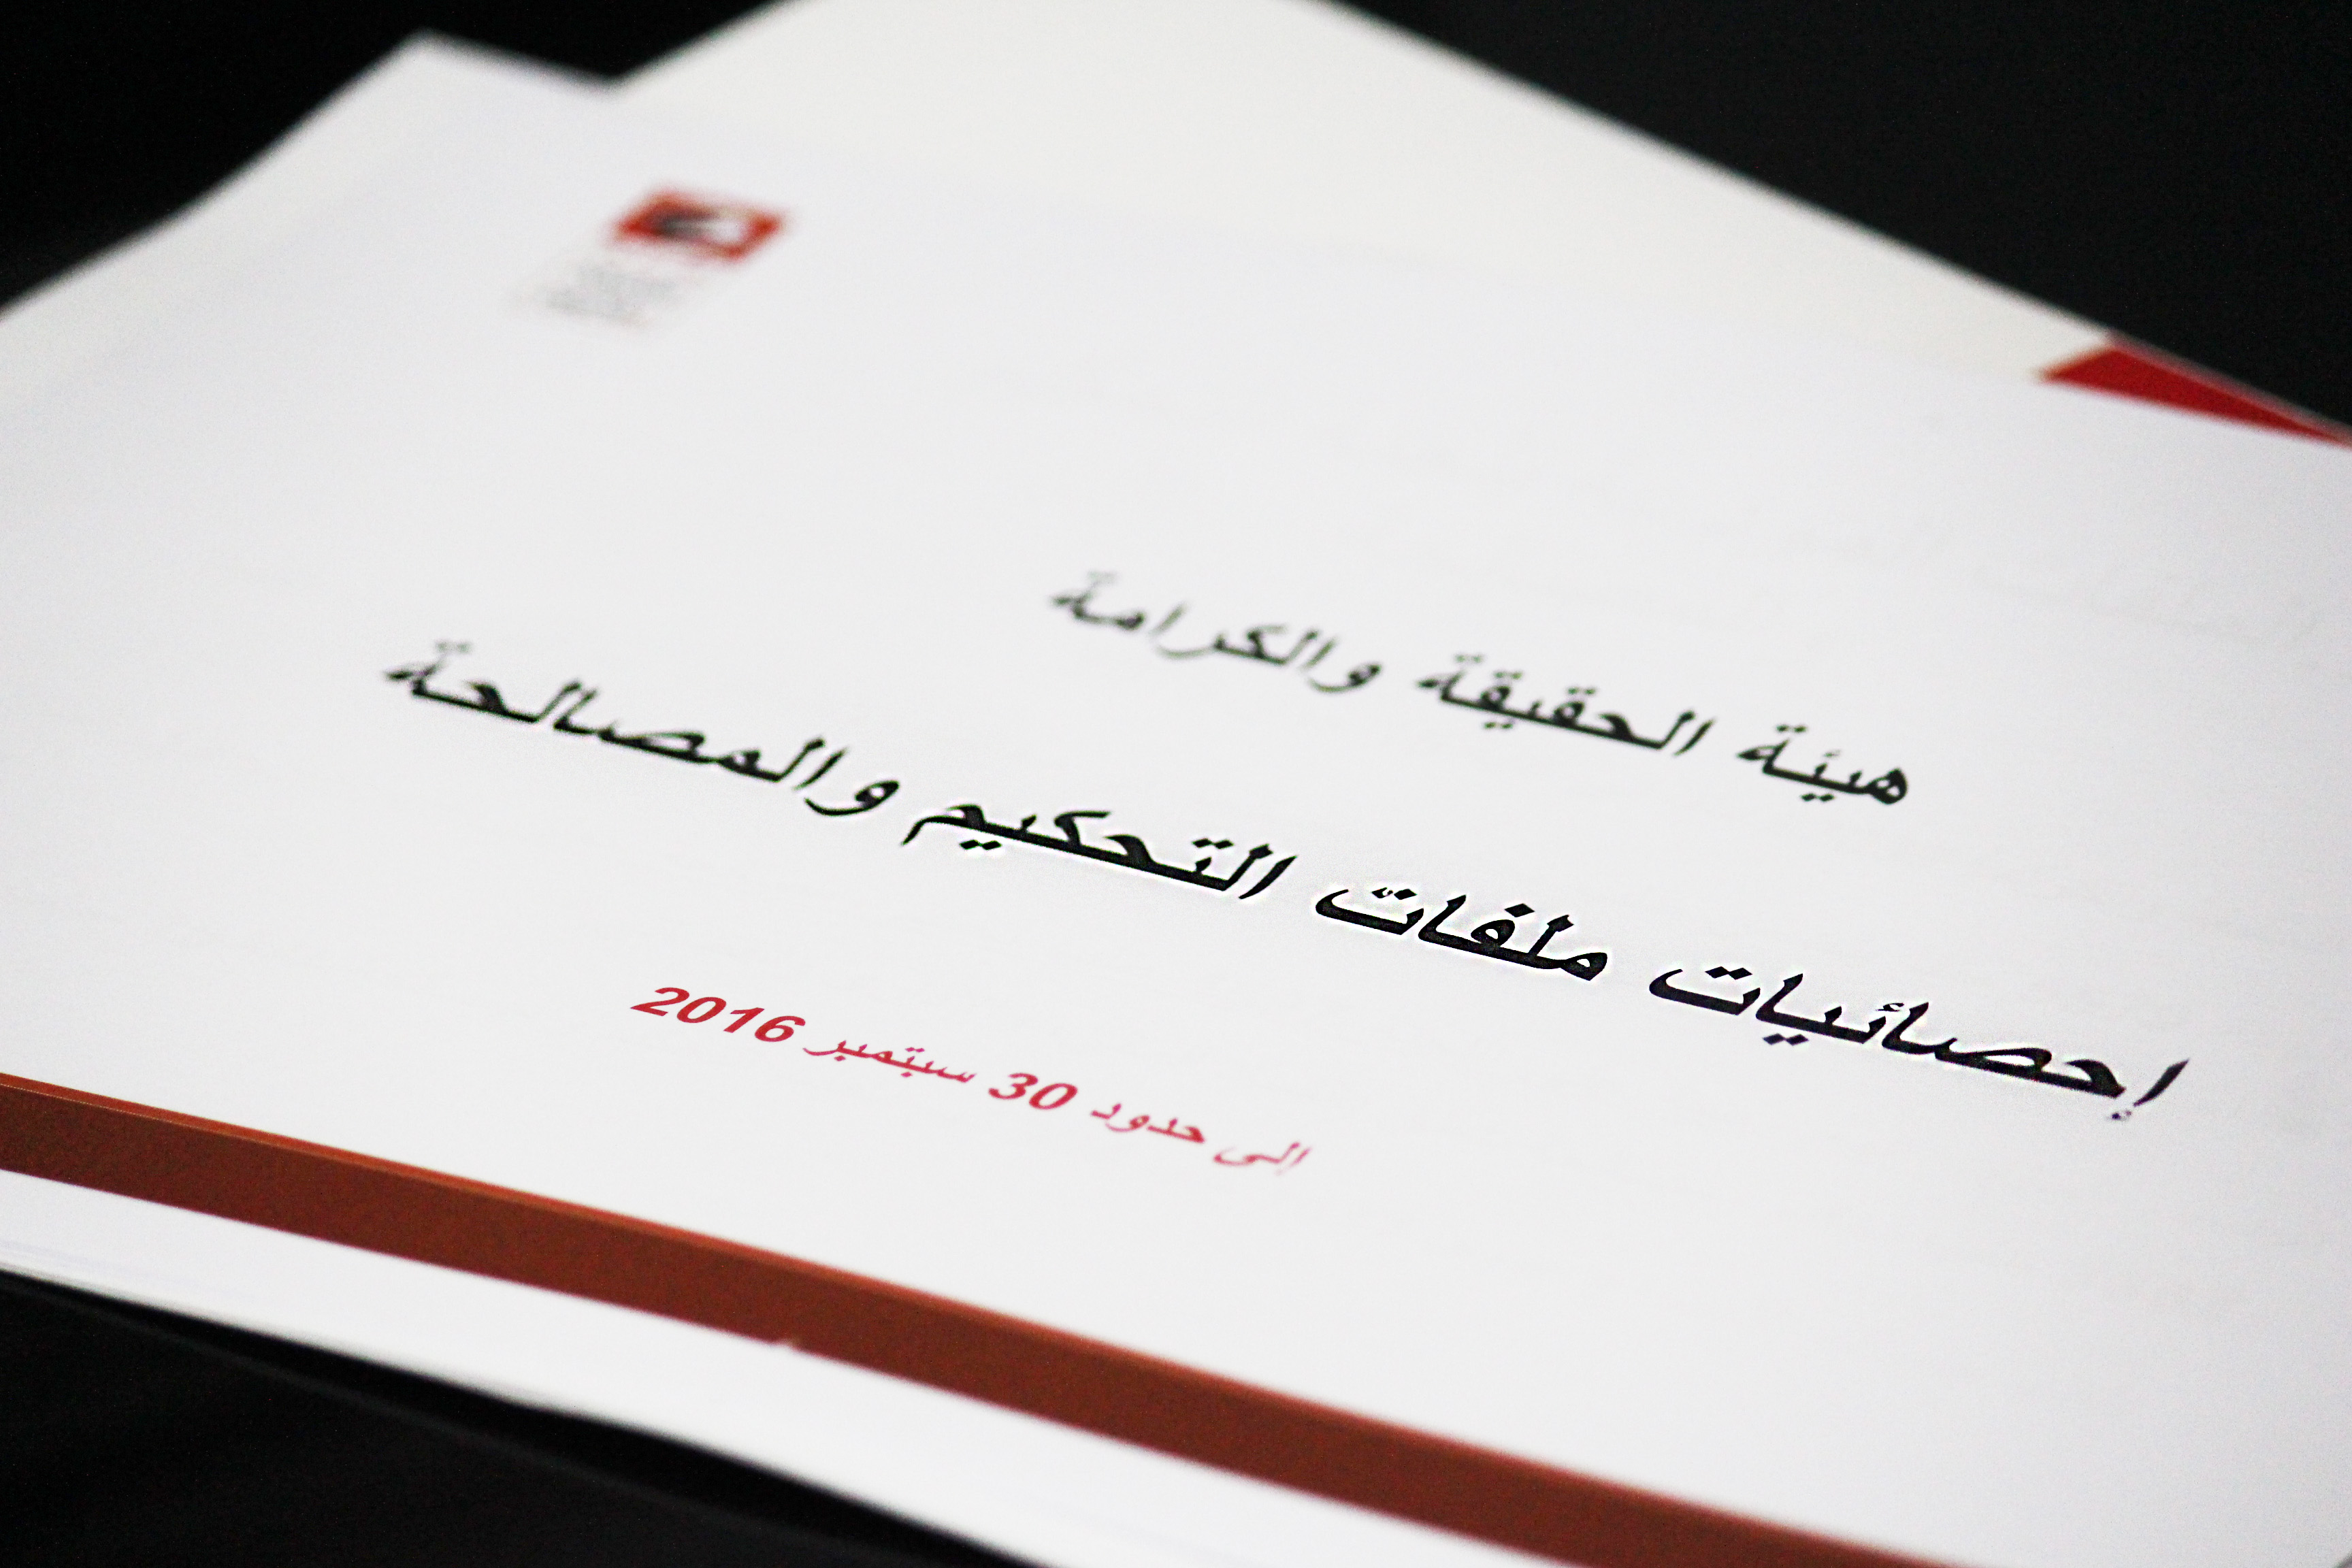 هيئة الحقيقة والكرامة
إحصائيات ملفات التحكيم والمصالحة
الى حدود 30 سبتمبر 2016